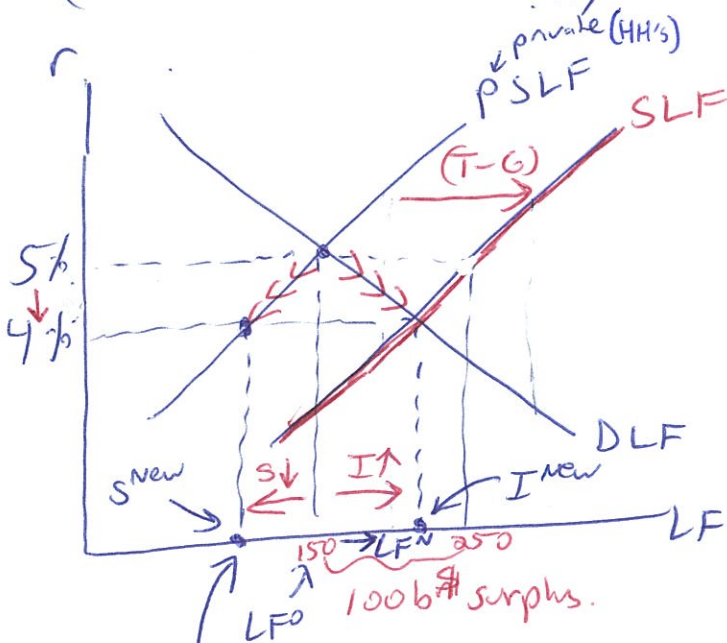 private (HH's)
r
PSLF
SLF
(T-G)
5%
4%
DLF
S↓
I↑
S^New
I^New
LF
150 → LF^N 250
LF^0
100b$ surplus.